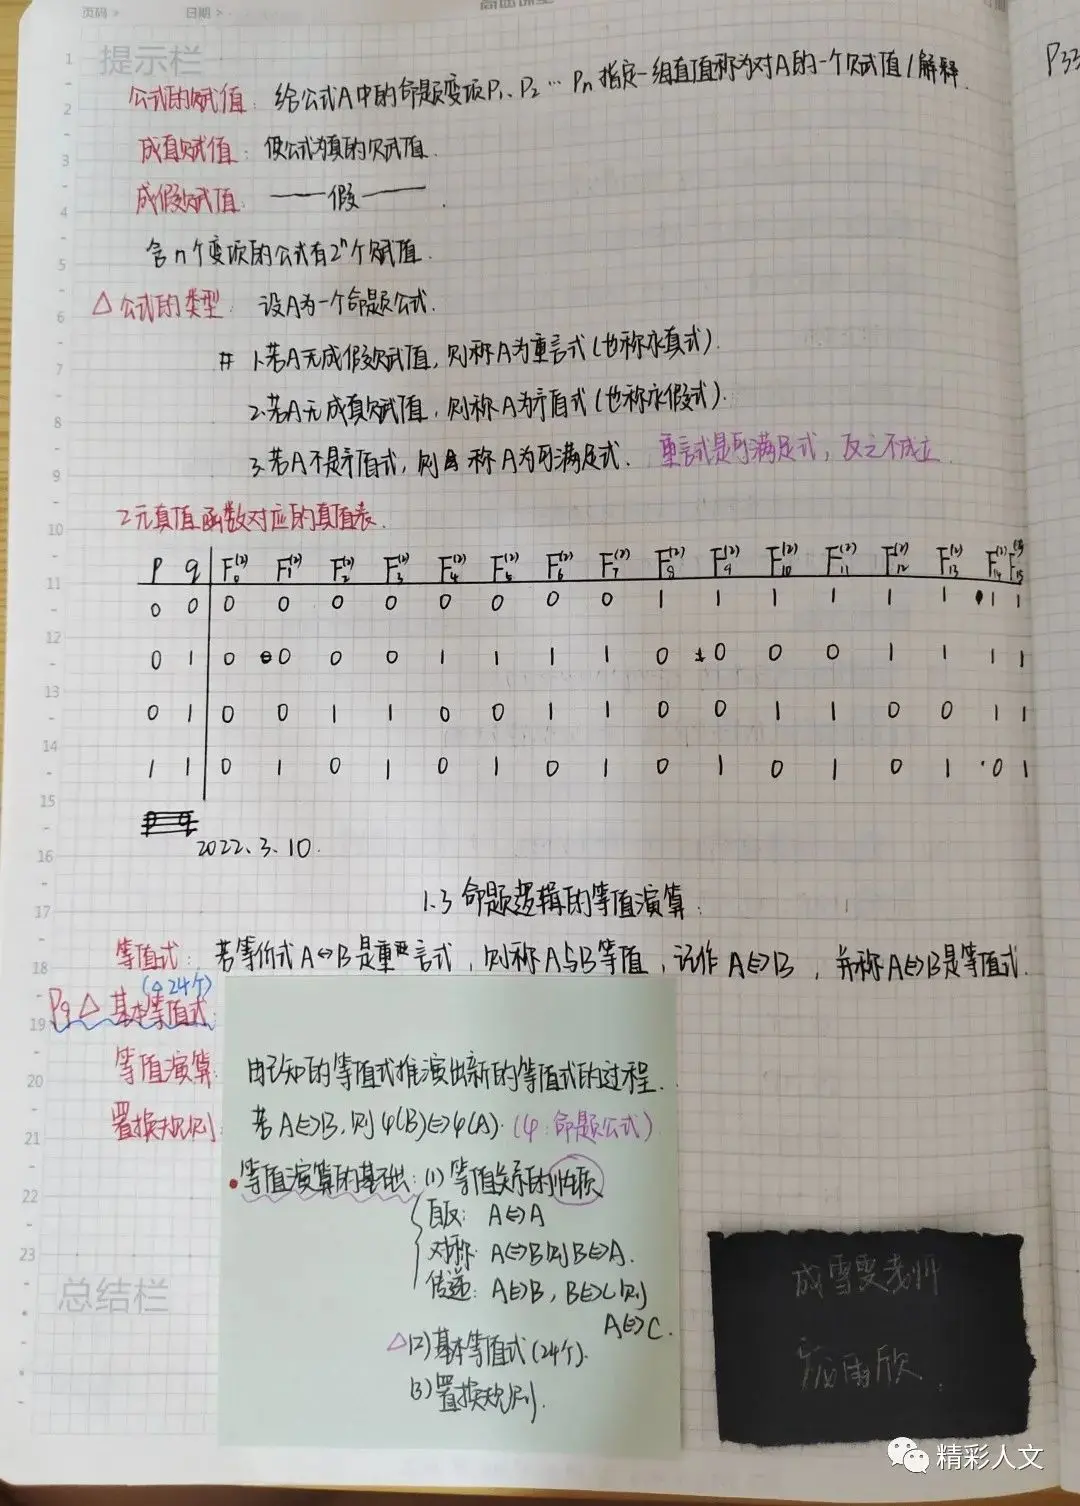 页码> 日期>
提示栏
P33
公式的赋值: 给公式A中的命题变项P₁、P₂…Pn指定一组真值称为对A的一个赋值/解释.
成真赋值: 使公式为真的赋值.
成假赋值: ——假——.
含n个变项的公式有2ⁿ个赋值.
△公式的类型: 设A为一个命题公式.
1.若A无成假赋值,则称A为重言式(也称永真式).
2.若A无成真赋值,则称A为矛盾式(也称永假式).
3.若A不是矛盾式,则称A为可满足式. 重言式是可满足式,反之不成立.
2元真值函数对应的真值表.
P q F₀⁽²⁾ F₁⁽²⁾ F₂⁽²⁾ F₃⁽²⁾ F₄⁽²⁾ F₅⁽²⁾ F₆⁽²⁾ F₇⁽²⁾ F₈⁽²⁾ F₉⁽²⁾ F₁₀⁽²⁾ F₁₁⁽²⁾ F₁₂⁽²⁾ F₁₃⁽²⁾ F₁₄⁽²⁾ F₁₅⁽²⁾
0 0 0 0 0 0 0 0 0 0 1 1 1 1 1 1 1 1
0 1 0 0 0 0 1 1 1 1 0 0 0 0 1 1 1 1
0 1 0 0 1 1 0 0 1 1 0 0 1 1 0 0 1 1
1 1 0 1 0 1 0 1 0 1 0 1 0 1 0 1 0 1
2022.3.10.
1.3 命题逻辑的等值演算.
等值式: 若等价式A↔B是重言式,则称A与B等值,记作A⇔B,并称A⇔B是等值式.
(24个)
P9 △ 基本等值式:
等值演算: 由已知的等值式推演出新的等值式的过程.
置换规则: 若A⇔B,则φ(B)⇔φ(A).(φ:命题公式)
•等值演算的基础:(1)等值关系的性质
自反: A⇔A
对称: A⇔B则B⇔A.
传递: A⇔B,B⇔C则
A⇔C.
△(2)基本等值式(24个).
(3)置换规则.
总结栏
成雪雯老师
雨欣.
精彩人文